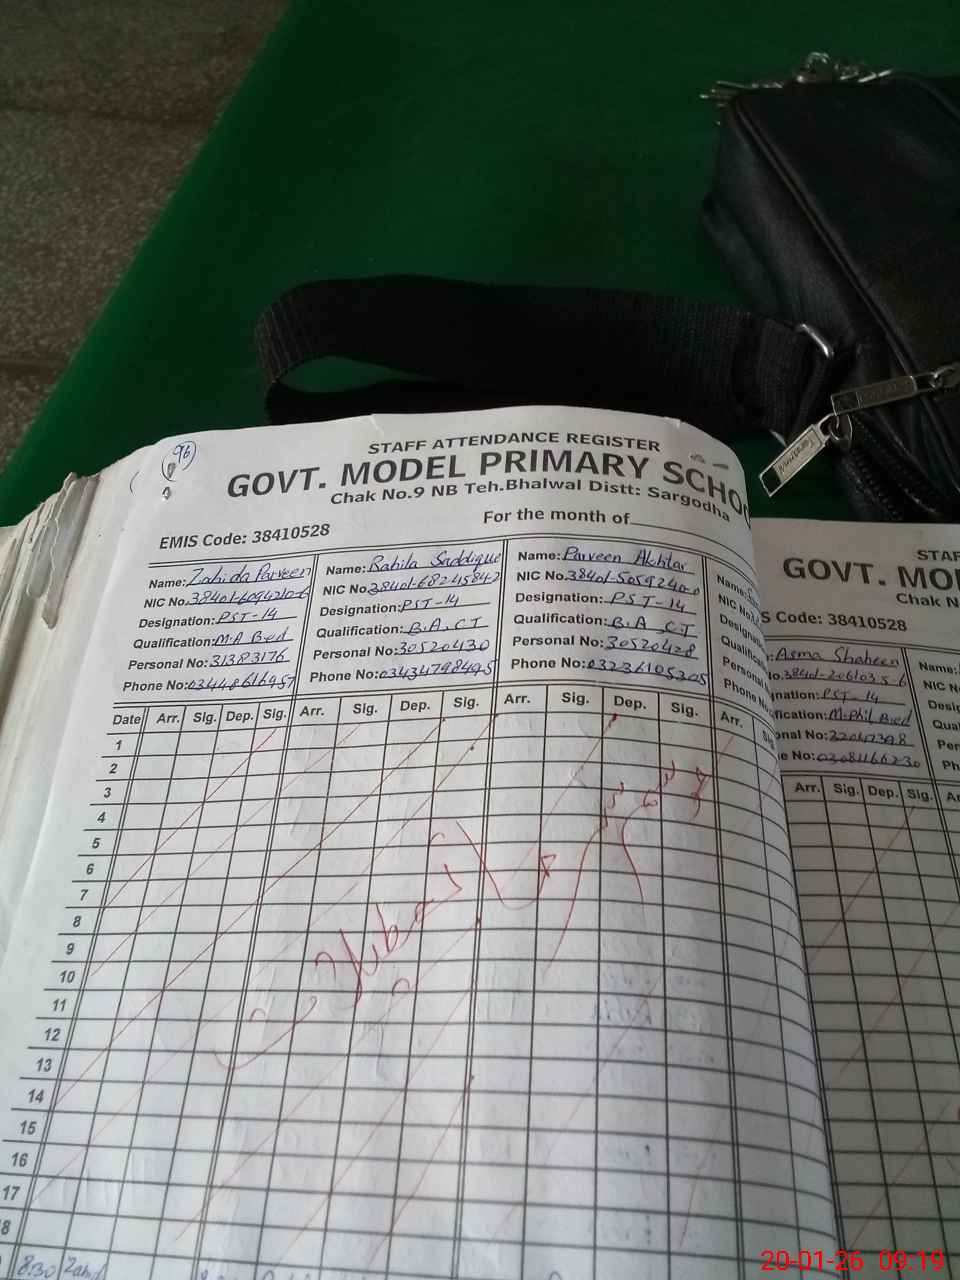 96
STAFF ATTENDANCE REGISTER
GOVT. MODEL PRIMARY SCHOO
Chak No.9 NB Teh.Bhalwal Distt: Sargodha
EMIS Code: 38410528
For the month of
Name: Zahida Parveen
NIC No. 38401-6094210-6
Designation: PST-14
Qualification: M.A B.ed
Personal No: 31383176
Phone No: 03448616957
Name: Rahila Saddique
NIC No. 38401-6824584-2
Designation: PST-14
Qualification: B.A, CT
Personal No: 30520430
Phone No: 03434798495
Name: Parveen Akhtar
NIC No. 38401-5059240-0
Designation: PST-14
Qualification: B.A CT
Personal No: 30520428
Phone No: 03236105305
Name:
NIC No
Designa
Qualifica
Personal
Phone No
Date Arr. Sig. Dep. Sig. Arr. Sig. Dep. Sig. Arr. Sig. Dep. Sig. Arr.
1
2
3
4
5
6
7
8
9
10
11
12
13
14
15
16
17
8
8:30
STAF
GOVT. MO
Chak N
S Code: 38410528
Asma Shaheen
38401-2061035-6
gnation: PST-14
fication: M.Phil B.ed
onal No: 32047398
e No: 03081166230
Arr. Sig. Dep. Sig.
20-01-26 09:19